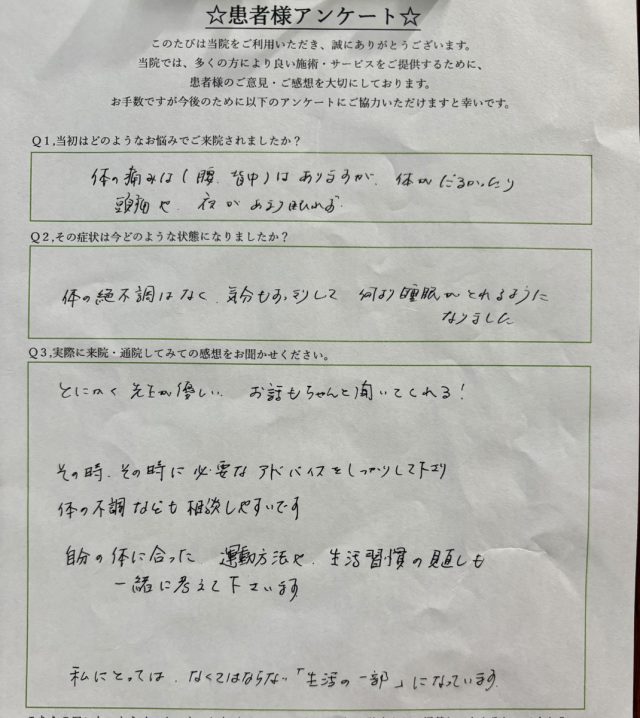 ☆患者様アンケート☆
このたびは当院をご利用いただき、誠にありがとうございます。
当院では、多くの方により良い施術・サービスをご提供するために、
患者様のご意見・ご感想を大切にしております。
お手数ですが今後のために以下のアンケートにご協力いただけますと幸いです。
Q1,当初はどのようなお悩みでご来院されましたか？
体の痛みは(腰、背中)はありますが、体がだるかったり
頭痛や、夜があまり
Q2,その症状は今どのような状態になりましたか？
体の絶不調はなく、気分もすっきりして 何より睡眠がとれるように
なりました
Q3,実際に来院・通院してみての感想をお聞かせください。
とにかく先生が優しい、お話もちゃんと聞いてくれる！
その時、その時に必要なアドバイスをしっかりして下さり
体の不調なども相談しやすいです
自分の体に合った 運動方法や、生活習慣の見直しも
一緒に考えて下さいます
私にとっては、なくてはならない「生活の一部」になっています。